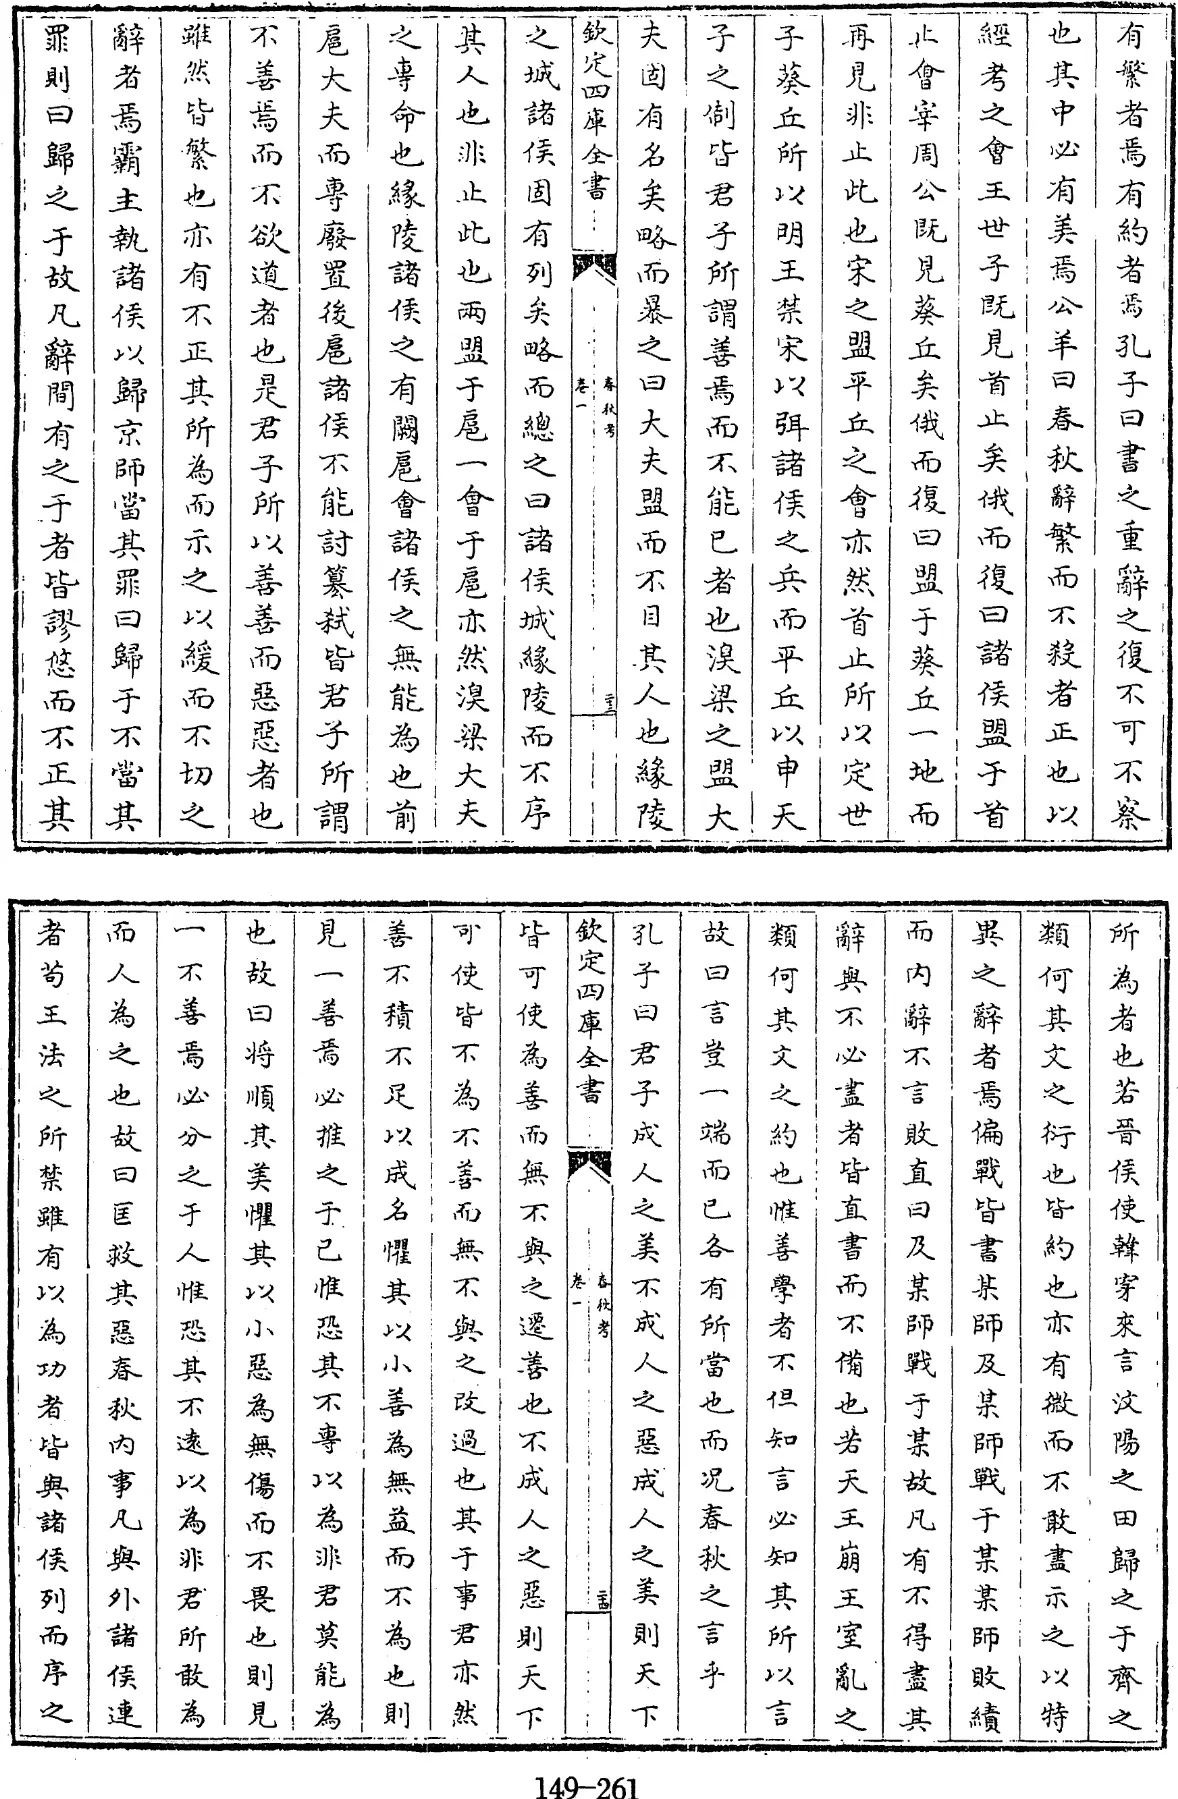 有繁者焉有約者焉孔子曰書之重辭之復不可不察
也其中必有美焉公羊曰春秋辭繁而不殺者正也以
經考之會王世子既見首止矣俄而復曰諸侯盟于首
止會宰周公既見葵丘矣俄而復曰盟于葵丘一地而
再見非止此也宋之盟平丘之會亦然首止所以定世
子葵丘所以明王禁宋以弭諸侯之兵而平丘以申天
子之制皆君子所謂善焉而不能已者也湨梁之盟大
夫固有名矣略而暴之曰大夫盟而不目其人也緣陵
欽定四庫全書
春秋考
卷一
二十三
之城諸侯固有列矣略而總之曰諸侯城緣陵而不序
其人也非止此也兩盟于扈一會于扈亦然湨梁大夫
之專命也緣陵諸侯之有闕扈會諸侯之無能為也前
扈大夫而專廢置後扈諸侯不能討簒弑皆君子所謂
不善焉而不欲道者也是君子所以善善而惡惡者也
雖然皆繁也亦有不正其所為而示之以緩而不切之
辭者焉霸主執諸侯以歸京師當其罪曰歸于不當其
罪則曰歸之于故凡辭間有之于者皆謬悠而不正其
所為者也若晉侯使韓穿來言汶陽之田歸之于齊之
類何其文之衍也皆約也亦有微而不敢盡示之以特
異之辭者焉偏戰皆書某師及某師戰于某某師敗績
而内辭不言敗直曰及某師戰于某故凡有不得盡其
辭與不必盡者皆直書而不備也若天王崩王室亂之
類何其文之約也惟善學者不但知言必知其所以言
故曰言豈一端而已各有所當也而况春秋之言乎
孔子曰君子成人之美不成人之惡成人之美則天下
欽定四庫全書
春秋考
卷一
二十四
皆可使為善而無不與之遷善也不成人之惡則天下
可使皆不為不善而無不與之改過也其于事君亦然
善不積不足以成名懼其以小善為無益而不為也則
見一善焉必推之于已惟恐其不專以為非君莫能為
也故曰將順其美懼其以小惡為無傷而不畏也則見
一不善焉必分之于人惟恐其不遠以為非君所敢為
而人為之也故曰匡救其惡春秋内事凡與外諸侯連
者苟王法之所禁雖有以為功者皆與諸侯列而序之
149-261